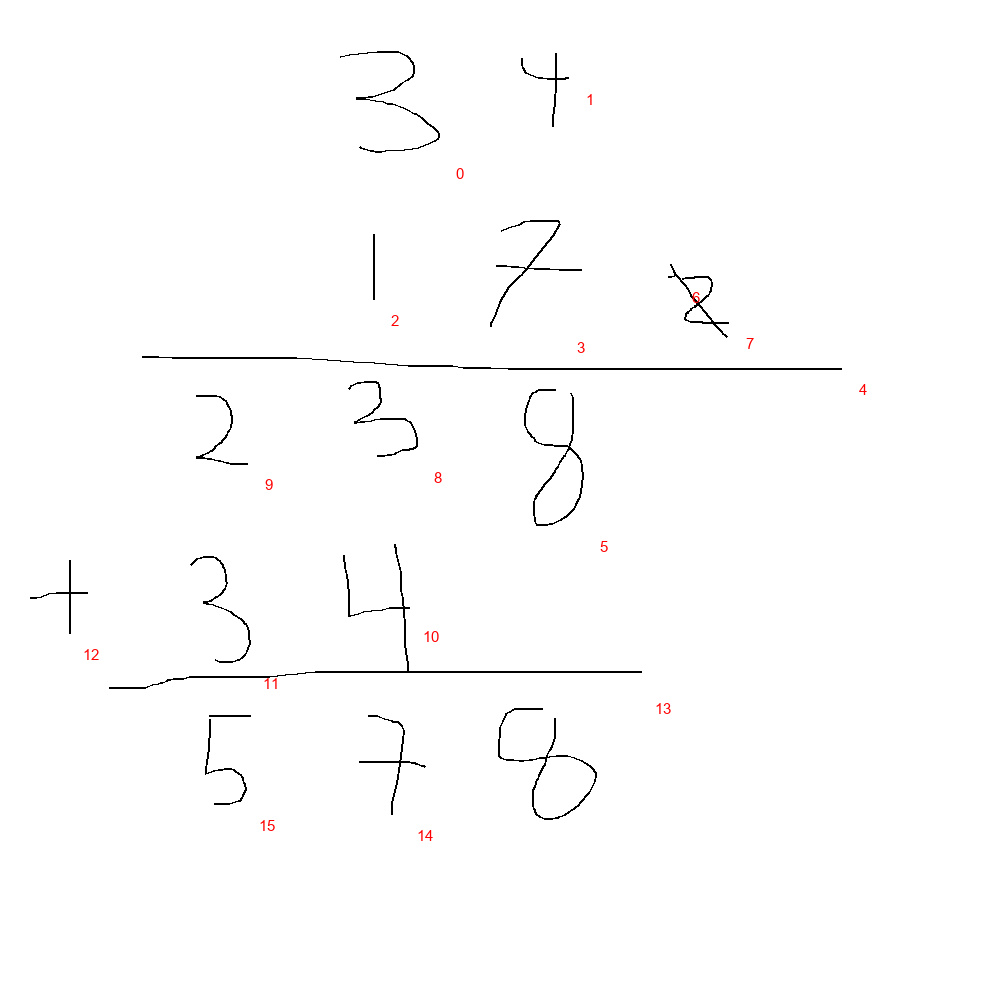 3 4 1
0
1 7 2
2 3 6 7
4
2 3 8
9 8 5
+ 3 4
12 11 10
13
5 7 8
15 14